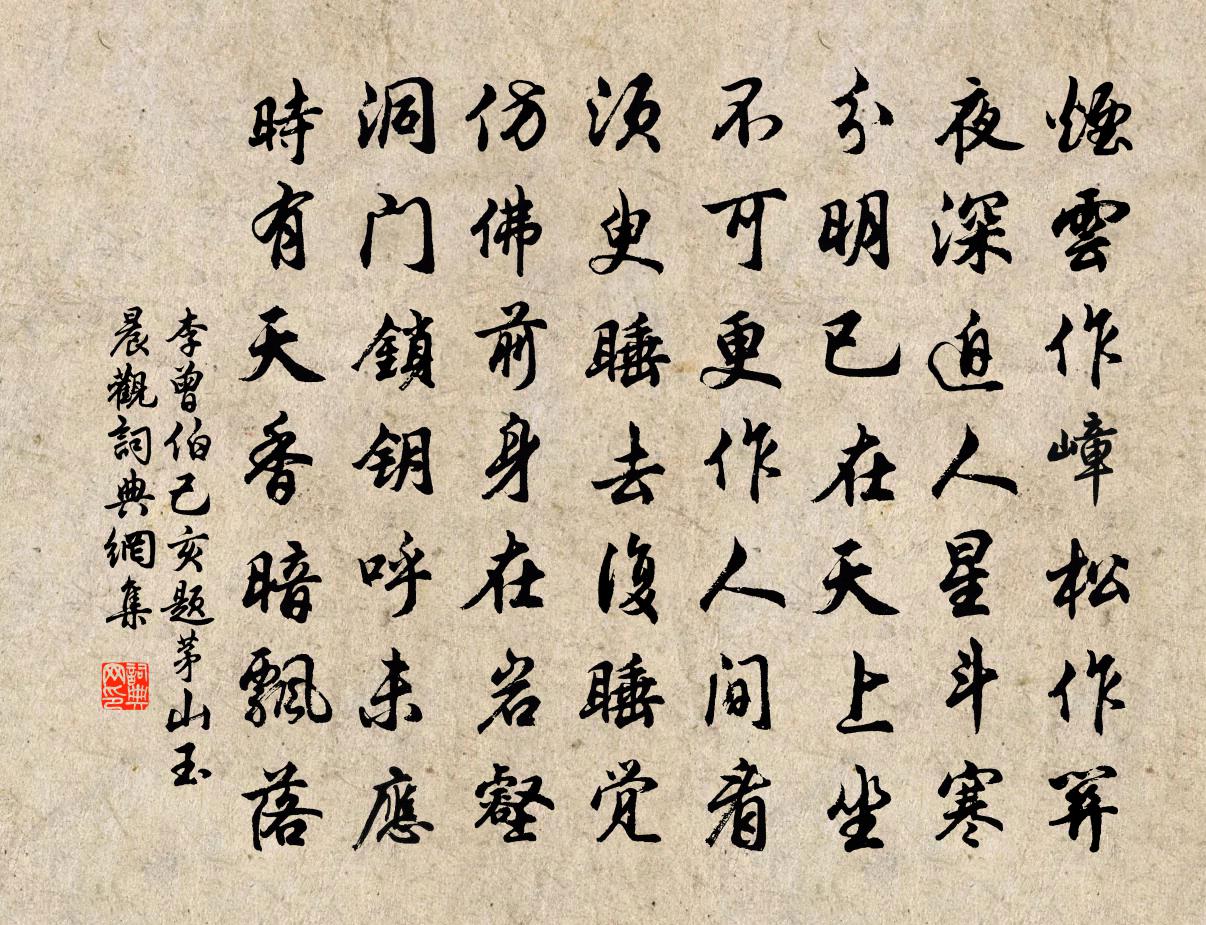 煙雲作嶂松作關
夜深迫人星斗寒
分明已在天上坐
不可更作人间看
須臾睡去復睡觉
仿佛前身在岩壑
洞门鎖鈅呼未應
時有天香暗飄落
李曾伯己亥题茅山玉
晨觀詞典網集
詞典
网印